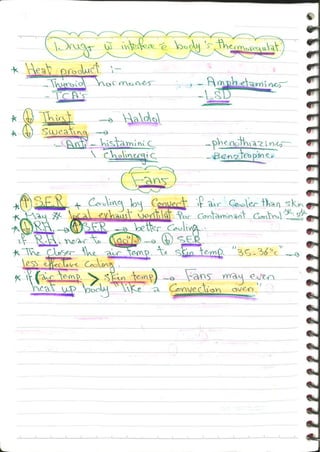 Drugs w̄ interfere c̄ body's thermoregulat.
* Heat product :-
- Thyroid hormones - Amphetamines
- TCA's - LSD
* ↓ Thirst → Haldol
* ↓ Sweating →
- Anti - histaminic - phenothiazines
\ Cholinergic - Benztropines
Fans
* ↑ SER + Cooling by Convect if air Cooler than skin
* May ※ local exhaust ventilat. for Contaminant Control
* ↓ RH → ↑ SER → better Cooling.
if RH near to 100% → ↓ SER
* The closer the air temp. to skin temp "35-36°c" →
less effective Cooling
* if (air temp. > skin temp) → Fans may even
heat up body "like a Convection oven"